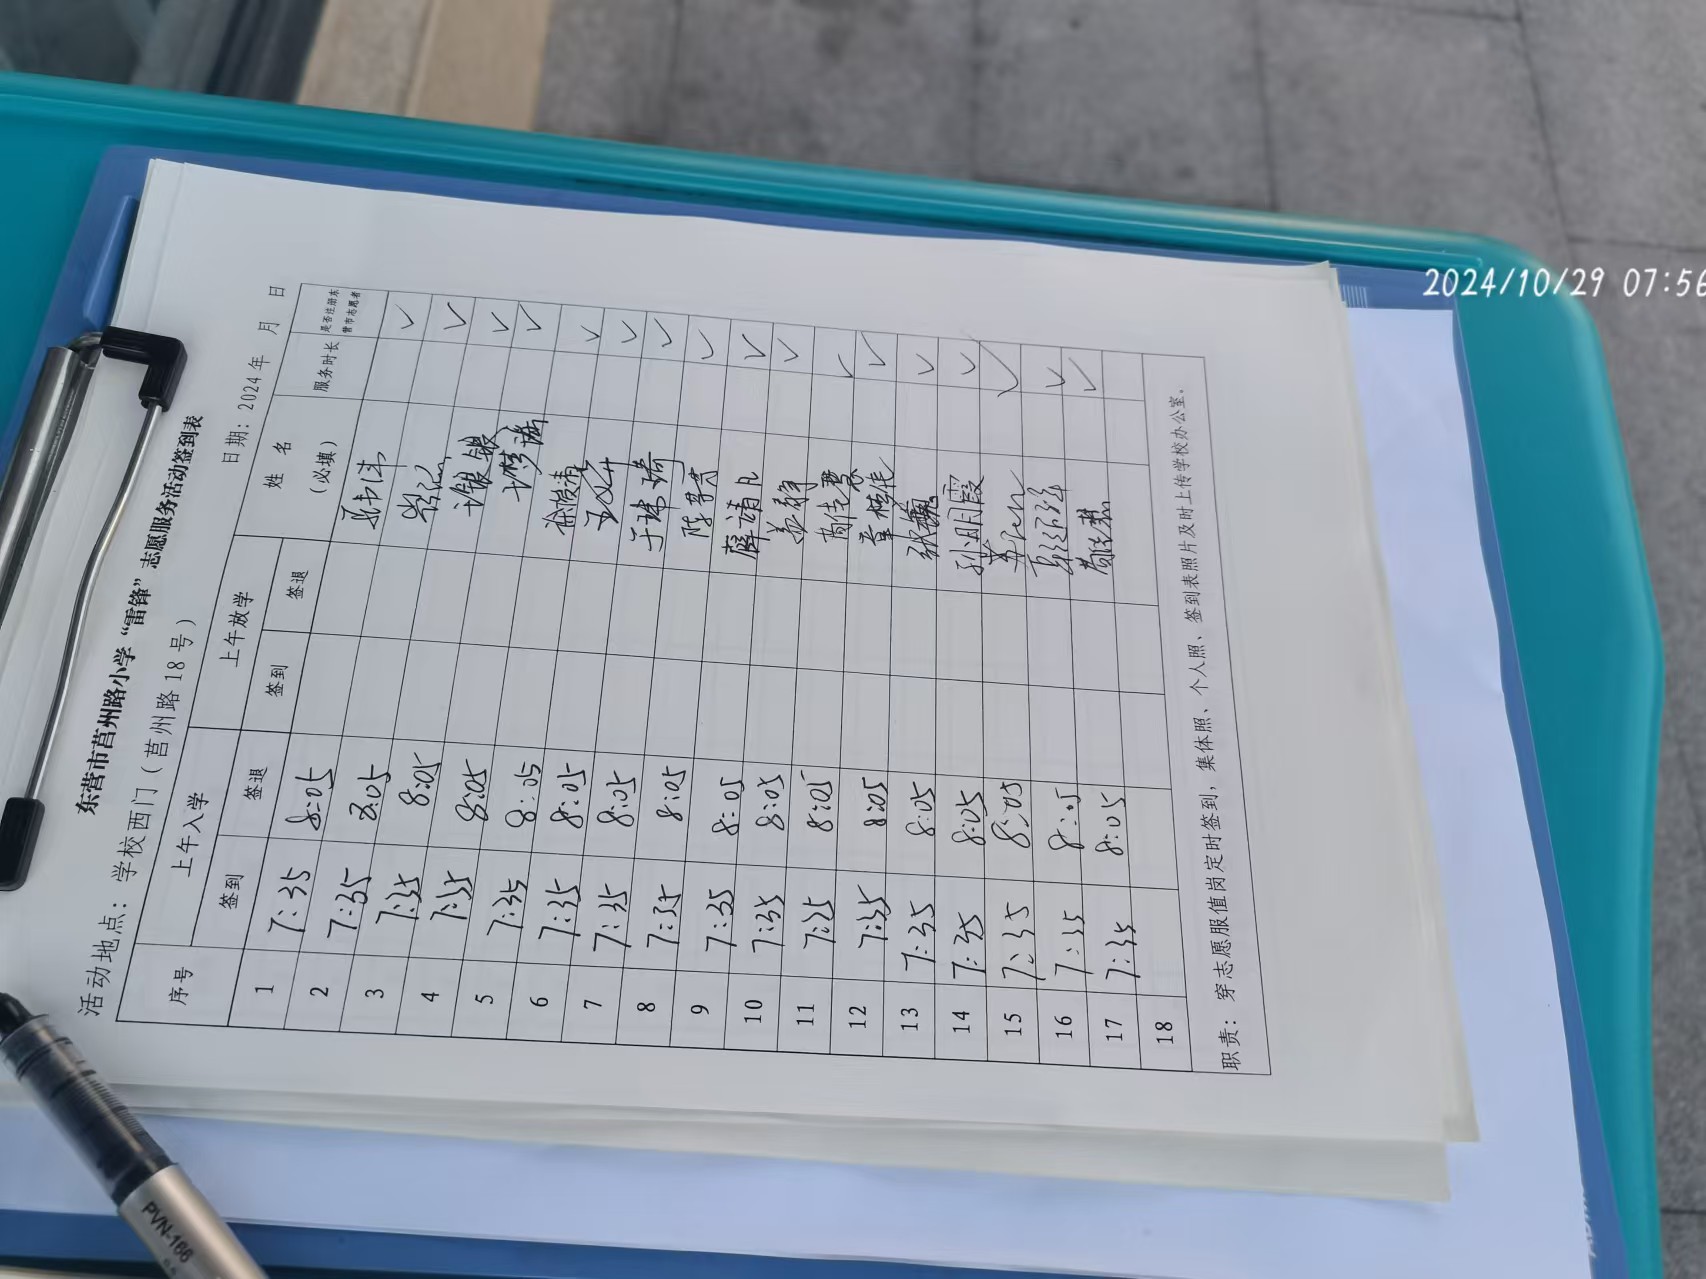 2024/10/29 07:56
东营市莒州路小学“雷锋”志愿服务活动签到表
活动地点：学校西门（莒州路18号） 日期：2024年 月 日
序号 上午入学 上午放学 姓 名 服务时长 是否注册东
签到 签退 签到 签退 （必填） 营市志愿者
1 7:35 8:05 ✓
2 7:35 8:05 ✓
3 7:35 8:05 ✓
4 7:35 8:05 ✓
5 7:35 8:05 徐陵清 ✓
6 7:35 8:05 ✓
7 7:35 8:05 于瑞琦 ✓
8 7:35 8:05 ✓
9 7:35 8:05 薛靖凡 ✓
10 7:35 8:05 ✓
11 7:35 8:05 ✓
12 7:35 8:05 ✓
13 7:35 8:05 ✓
14 7:35 8:05 孙明霞 ✓
15 7:35 8:05 ✓
16 7:35 8:05 ✓
17 7:35 8:05 ✓
18
职责：穿志愿服值岗定时签到，集体照、个人照、签到表照片及时上传学校办公室。
PVN-166